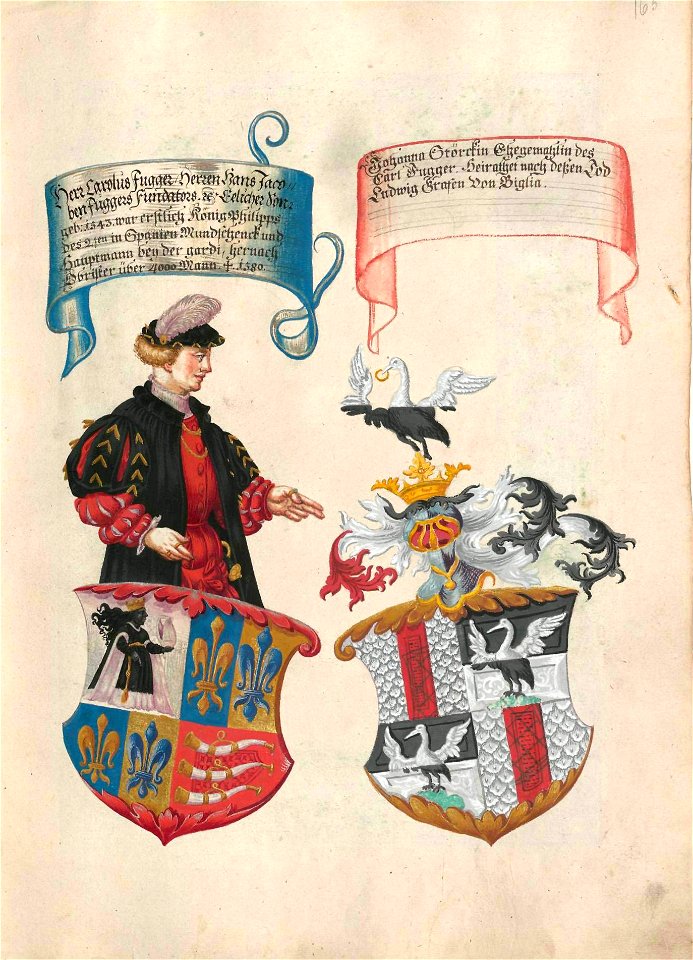 165
Herr Carolus Fugger, Herren Hans Jaco-
ben Fuggers Fundators. &c. Eelicher Son.
geb. 1543. war erstlich König Philipps
des 2.ten in Spanien Mundschenck und
Hauptmann bey der gardi, hernach
Obrister über 4000 Mann. ✝ 1580.
Johanna Störckin Ehegemahlin des
Carl Fugger. Heirathet nach deßen Tod
Ludwig Grafen Von Biglia.